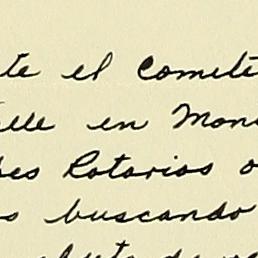 te el Comité
alle en Mon
es Rotarios o
s buscando